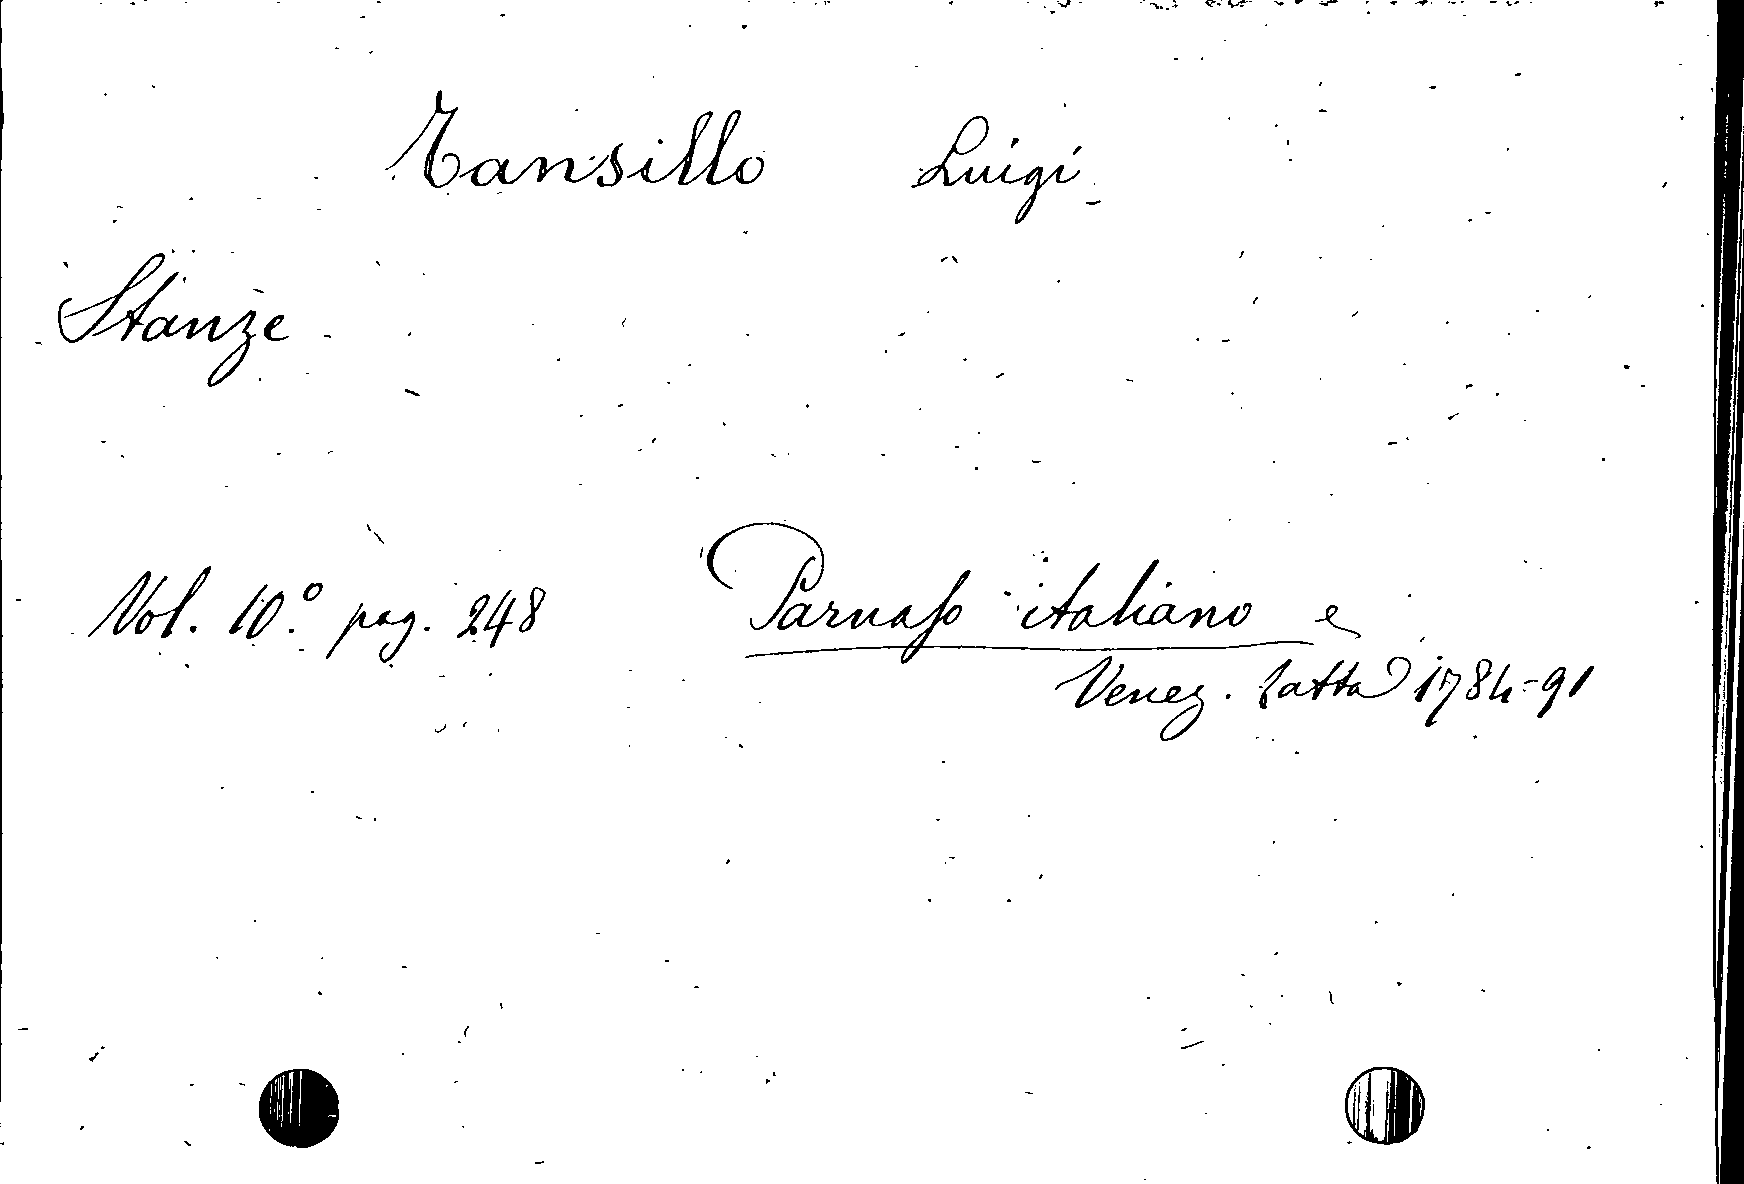 Tansillo Luigi
Stanze
Vol. 10.º pag. 248 Parnaſo italiano e
Venez. Zatta 1784-91